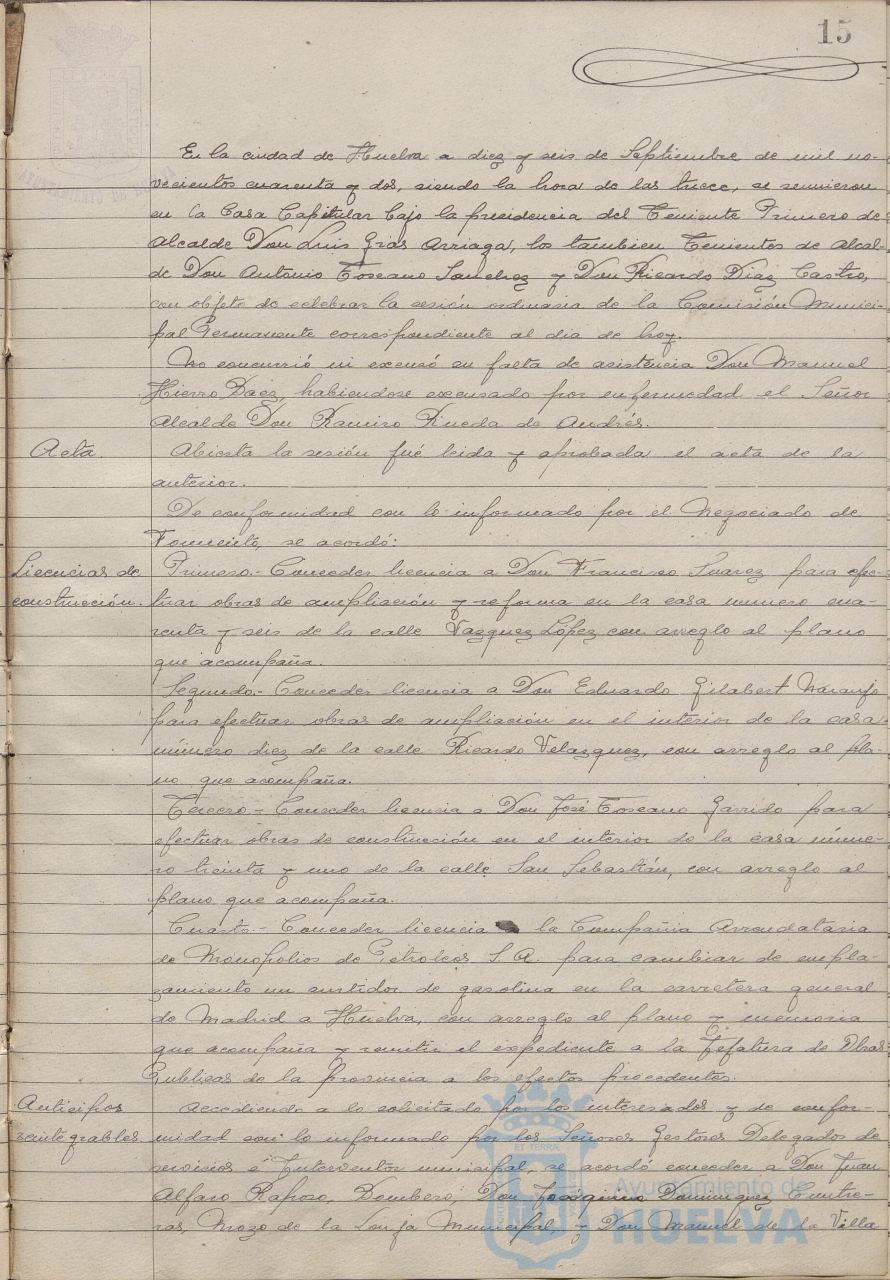 15
En la ciudad de Huelva a diez y seis de Septiembre de mil no-
vecientos cuarenta y dos, siendo la hora de las trece, se reunieron
en la Casa Capitular bajo la presidencia del Teniente Primero de
Alcalde Don Luis Gras Arriaga, los tambien Tenientes de Alcal-
de Don Antonio Toscano Sanchez y Don Ricardo Diaz Castro,
con objeto de celebrar la sesión ordinaria de la Comisión Munici-
pal Permanente correspondiente al dia de hoy.
No concurrió ni excusó su falta de asistencia Don Manuel
Hierro Daez, habiendose excusado por enfermedad el Señor
Alcalde Don Ramiro Rueda de Andrés.
Acta. Abierta la sesión fué leida y aprobada el acta de la
anterior.
De conformidad con lo informado por el Negociado de
Fomento, se acordó:
Licencias de Primero.- Conceder licencia a Don Francisco Suarez para efec-
construcción. tuar obras de ampliación y reforma en la casa numero cua-
renta y seis de la calle Vazquez López con arreglo al plano
que acompaña.
Segundo.- Conceder licencia a Don Eduardo Gilabert Naranjo
para efectuar obras de ampliación en el interior de la casa
número diez de la calle Ricardo Velazquez, con arreglo al pla-
no que acompaña.
Tercero.- Conceder licencia a Don José Toscano Garrido para
efectuar obras de construcción en el interior de la casa núme-
ro treinta y uno de la calle San Sebastián, con arreglo al
plano que acompaña.
Cuarto.- Conceder licencia la Compañia Arrendataria
de Monopolios de Petroleos S. A. para cambiar de empla-
zamiento un surtidor de gasolina en la carretera general
de Madrid a Huelva, con arreglo al plano y memoria
que acompaña y remitir el expediente a la Jefatura de Obras
Publicas de la provincia a los efectos procedentes.
Anticipos Accediendo a lo solicitado por los interesados y de confor-
reintegrables. midad con lo informado por los Señores Gestores Delegados de
servicios e Interventor municipal, se acordó conceder a Don Juan
Alfaro Raposo, Bombero, Don Joaquino Dominguez Contre-
ras, Mozo de la Lonja Municipal, y Don Manuel de la Villa
Ayuntamiento de
HUELVA